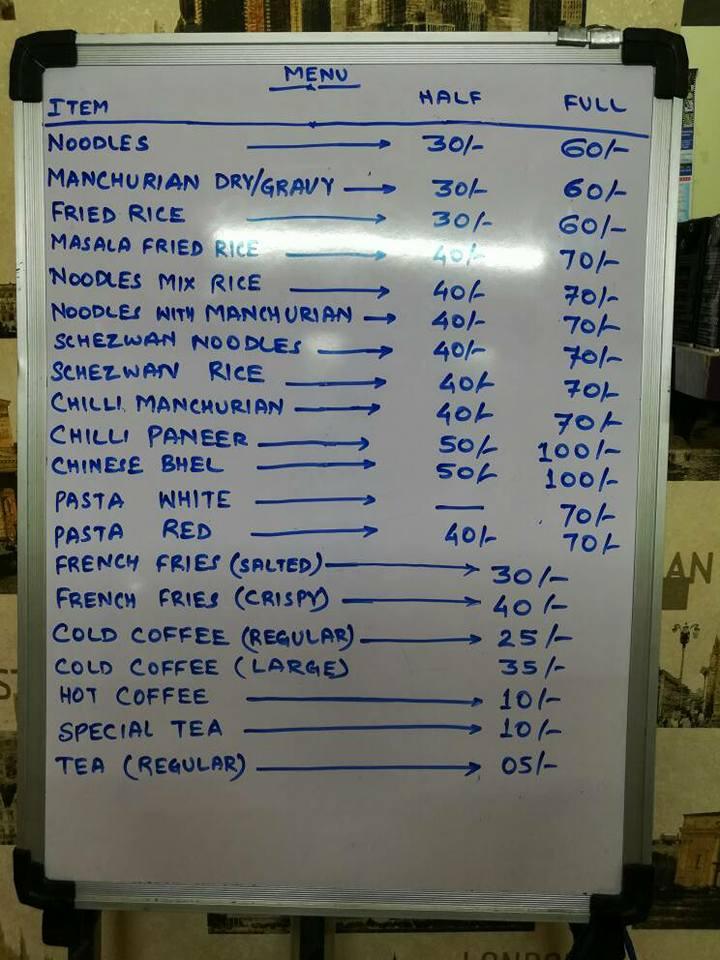 MENU
ITEM HALF FULL
NOODLES 30/- 60/-
MANCHURIAN DRY/GRAVY 30/- 60/-
FRIED RICE 30/- 60/-
MASALA FRIED RICE 40/- 70/-
NOODLES MIX RICE 40/- 70/-
NOODLES WITH MANCHURIAN 40/- 70/-
SCHEZWAN NOODLES 40/- 70/-
SCHEZWAN RICE 40/- 70/-
CHILLI MANCHURIAN 40/- 70/-
CHILLI PANEER 50/- 100/-
CHINESE BHEL 50/- 100/-
PASTA WHITE — 70/-
PASTA RED 40/- 70/-
FRENCH FRIES (SALTED) 30/-
FRENCH FRIES (CRISPY) 40/-
COLD COFFEE (REGULAR) 25/-
COLD COFFEE (LARGE) 35/-
HOT COFFEE 10/-
SPECIAL TEA 10/-
TEA (REGULAR) 05/-